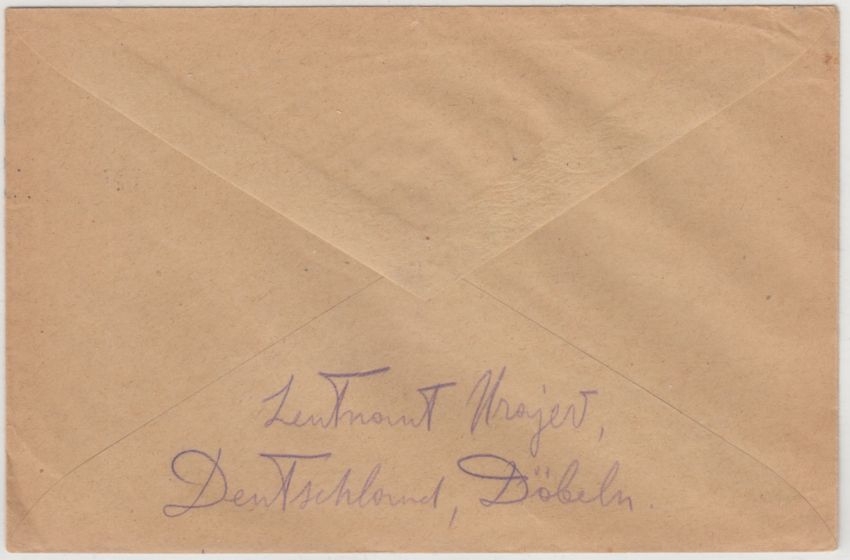 Leutnant Urajev,
Deutschland, Döbeln.